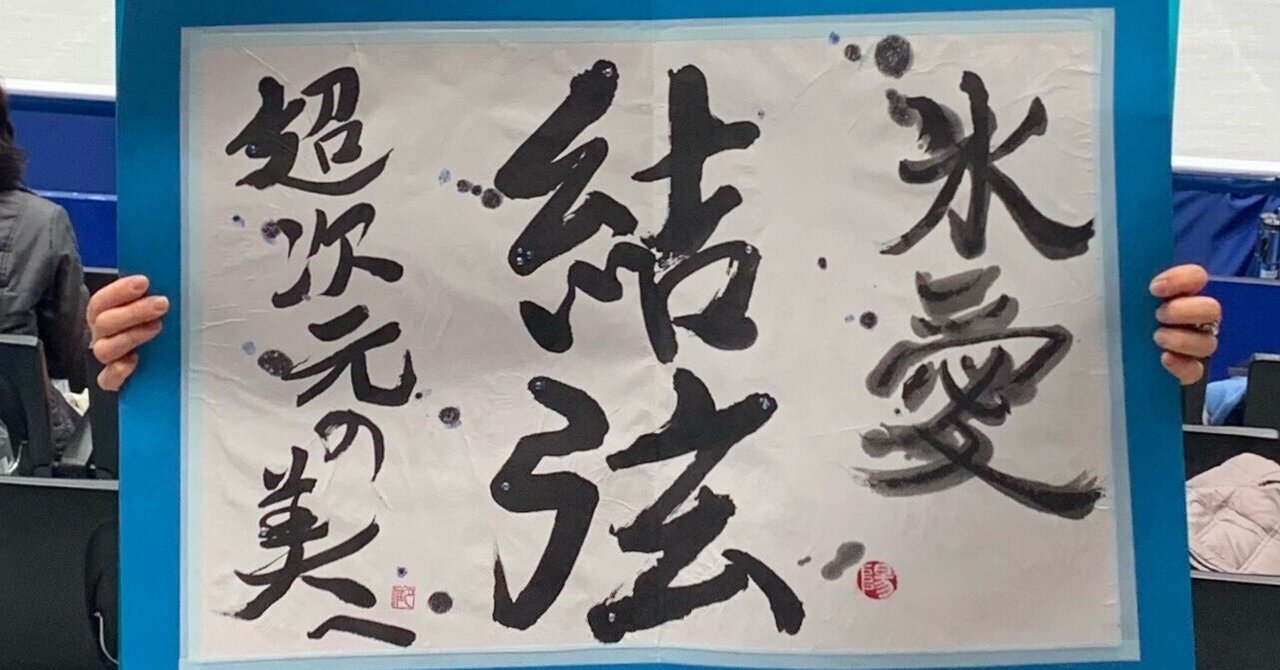 氷愛
結弦
超次元の美へ